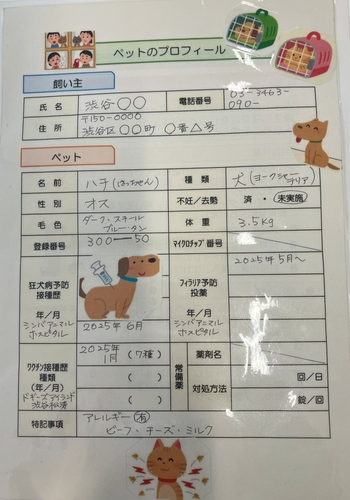 ペットのプロフィール
飼い主
氏名 渋谷〇〇 電話番号 03-3463- 090-
住所 〒150-0000 渋谷区〇〇町 〇番△号
ペット
名前 ハチ(はっちせん) 種類 犬(ヨークシャーテリア)
性別 オス 不妊/去勢 済・未実施
毛色 ダーク・スチールブルー・タン 体重 3.5kg
登録番号 300―50 マイクロチップ番号
狂犬病予防接種歴 フィラリア予防投薬 2025年5月~
年/月 シンバアニマルホスピタル 2025年6月 年/月 シンバアニマルホスピタル
ワクチン接種歴 種類(年/月) ドギーズアイランド 2025年1月(7種) 常備薬 薬剤名
( ) 対処方法 回/日
( ) 錠/回
特記事項 アレルギー 有
ビーフ・チーズ・ミルク